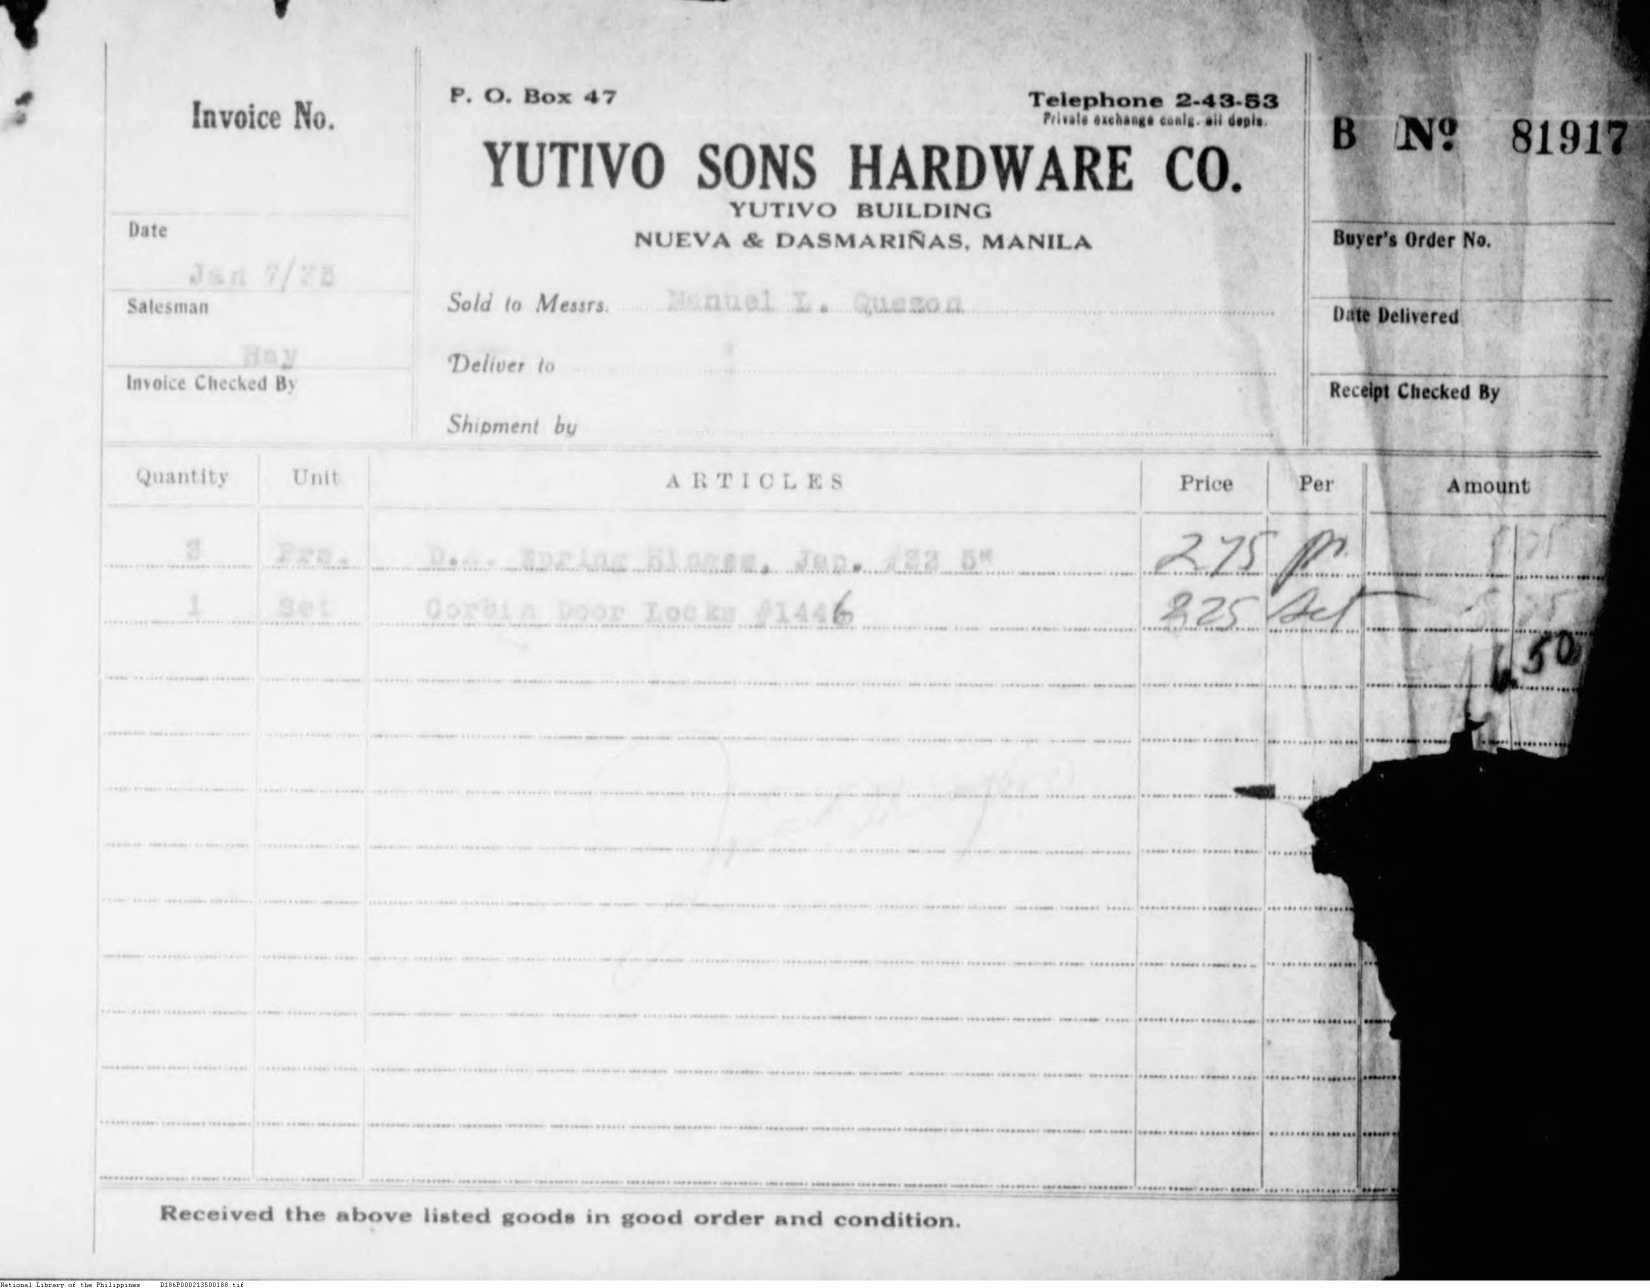 Invoice No.
P. O. Box 47
Telephone 2-43-53
Private exchange conlg. all depts.
YUTIVO SONS HARDWARE CO.
YUTIVO BUILDING
NUEVA & DASMARIÑAS, MANILA
B Nº 81917
Date
Jan 7/
Salesman
Hay
Invoice Checked By
Sold to Messrs. Manuel L. Quezon
Deliver to
Shipment by
Buyer's Order No.
Date Delivered
Receipt Checked By
Quantity Unit ARTICLES Price Per Amount
3 Prs. D.A. Spring Hinges, Jap. #33 5" 275 pr.
1 Set Corbin Door Locks #1446 225 Set
50
Received the above listed goods in good order and condition.
National Library of the Philippines D186P000213500188.tif